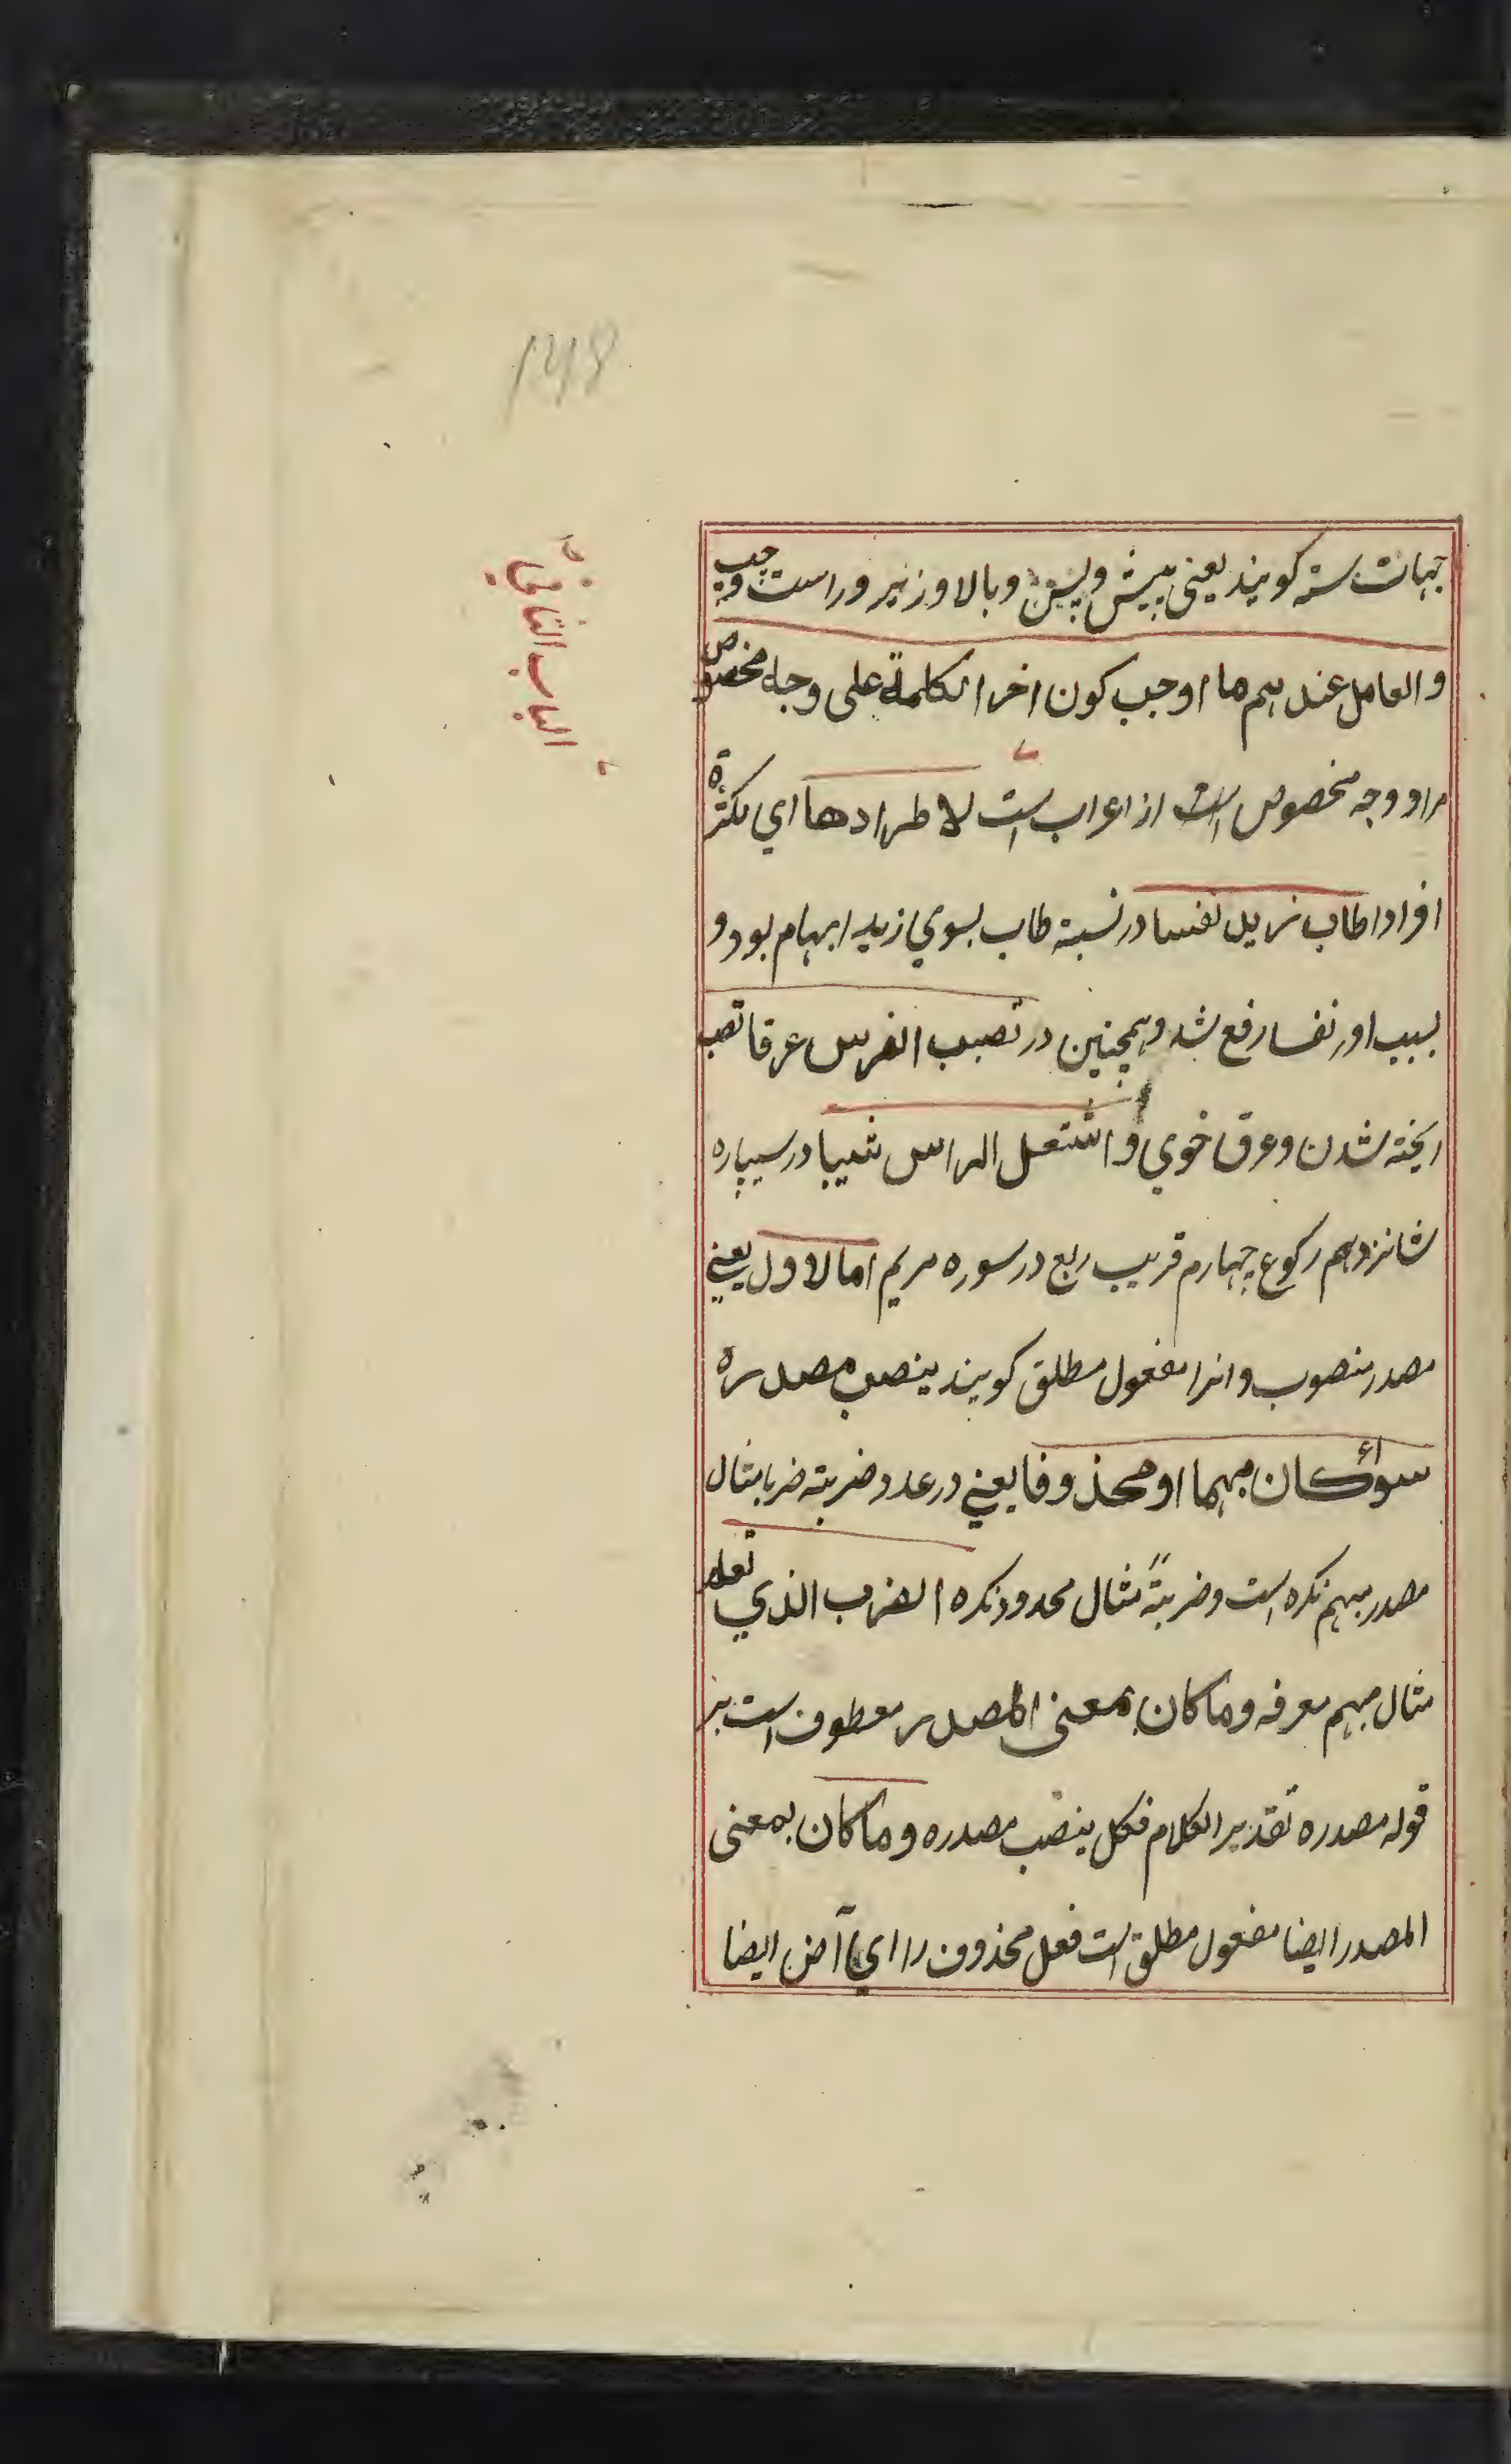 148
الباب الثاني
جهات سته كويند يعني پيش و پس و بالا و زير و راست و چپ
و العامل عند هم ما اوجب كون اخر الكلمة على وجه مخصوص
مراد وجه مخصوص است از اعراب است لاطرادها اي لكثرة
افرادا طاب زيد نفسا در نسبة طاب بسوي زيد ابهام بود و
بسبب او نفسا رفع شد و همچنين در تصبب الفرس عرقا تصبب
ريخته شدن و عرق خوي و اشتعل الراس شيبا در سيپاره
شانزدهم ركوع چهارم قريب ربع در سوره مريم اما الاول يعني
مصدر منصوب و انرا مفعول مطلق كويند ينصب مصدره
سواء كان مبهما او محذوفا يعني در عدد ضربته ضربا مثال
مصدر مبهم نكره است و ضربتة مثال محدود نكره الضرب الذي تعلم
مثال مبهم معرفه و ما كان بمعنى المصدر معطوف است بر
قوله مصدره تقدير الكلام فكل ينصب مصدره و ما كان بمعنى
المصدر ايضا مفعول مطلق است فعل محذوف را اي آض ايضا